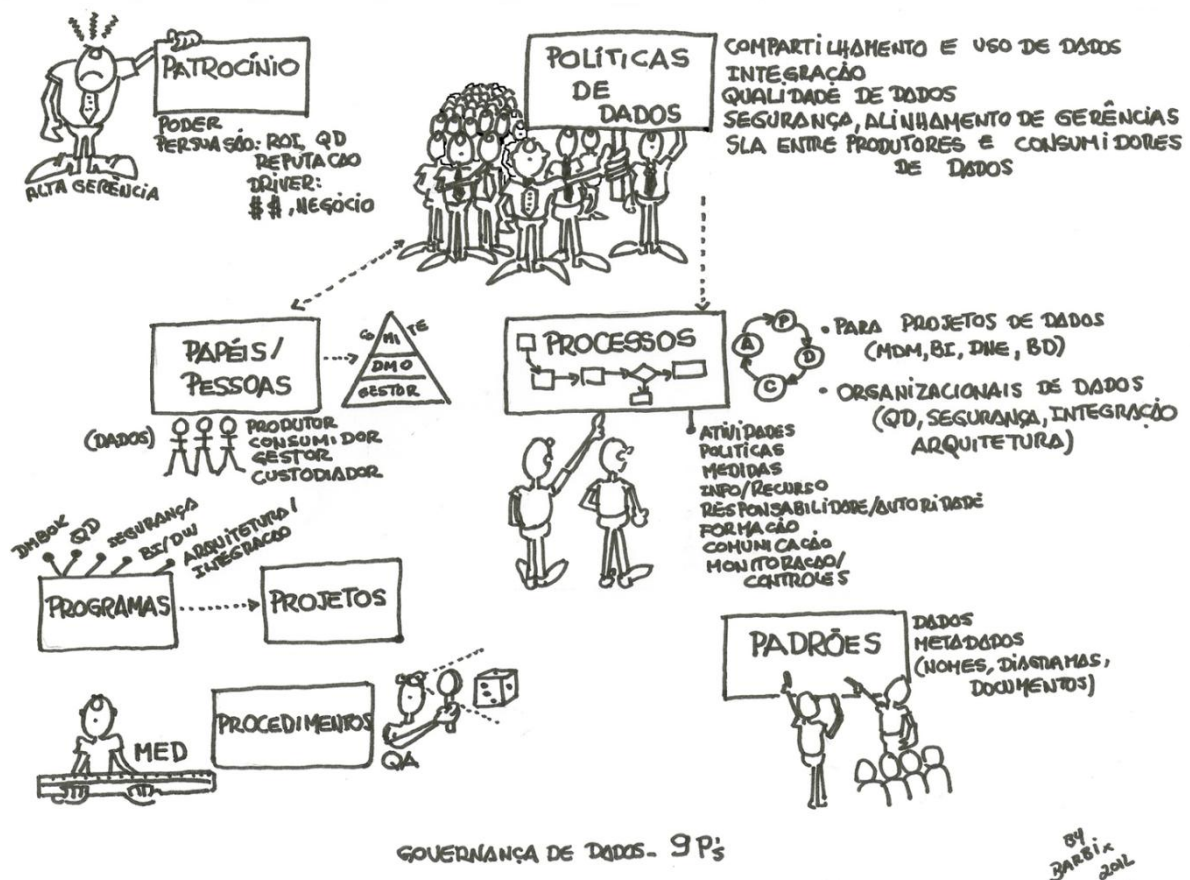 PATROCÍNIO
PODER
PERSUASÃO: ROI, QD
REPUTACAO
DRIVER:
$$, NEGÓCIO
ALTA GERÊNCIA
POLÍTICAS
DE
DADOS
COMPARTILHAMENTO E USO DE DADOS
INTEGRAÇÃO
QUALIDADE DE DADOS
SEGURANÇA, ALINHAMENTO DE GERÊNCIAS
SLA ENTRE PRODUTORES E CONSUMIDORES
DE DADOS
PAPÉIS/
PESSOAS
CO MI TE
DMO
GESTOR
(DADOS)
PRODUTOR
CONSUMIDOR
GESTOR
CUSTODIADOR
PROCESSOS
P
D
C
A
• PARA PROJETOS DE DADOS
(MDM, BI, DNE, BD)
• ORGANIZACIONAIS DE DADOS
(QD, SEGURANÇA, INTEGRAÇÃO
ARQUITETURA)
ATIVIDADES
POLITICAS
MEDIDAS
INFO/RECURSO
RESPONSABILIDADE/AUTORIDADE
FORMAÇÃO
COMUNICAÇÃO
MONITORAÇÃO/
CONTROLES
DMBOK
QD
SEGURANÇA
BI/DW
ARQUITETURA/
INTEGRACAO
PROGRAMAS
PROJETOS
PROCEDIMENTOS
MED
QA
PADRÕES
DADOS
METADADOS
(NOMES, DIAGRAMAS,
DOCUMENTOS)
GOVERNANÇA DE DADOS - 9 P's
BY
BARBIX
2012